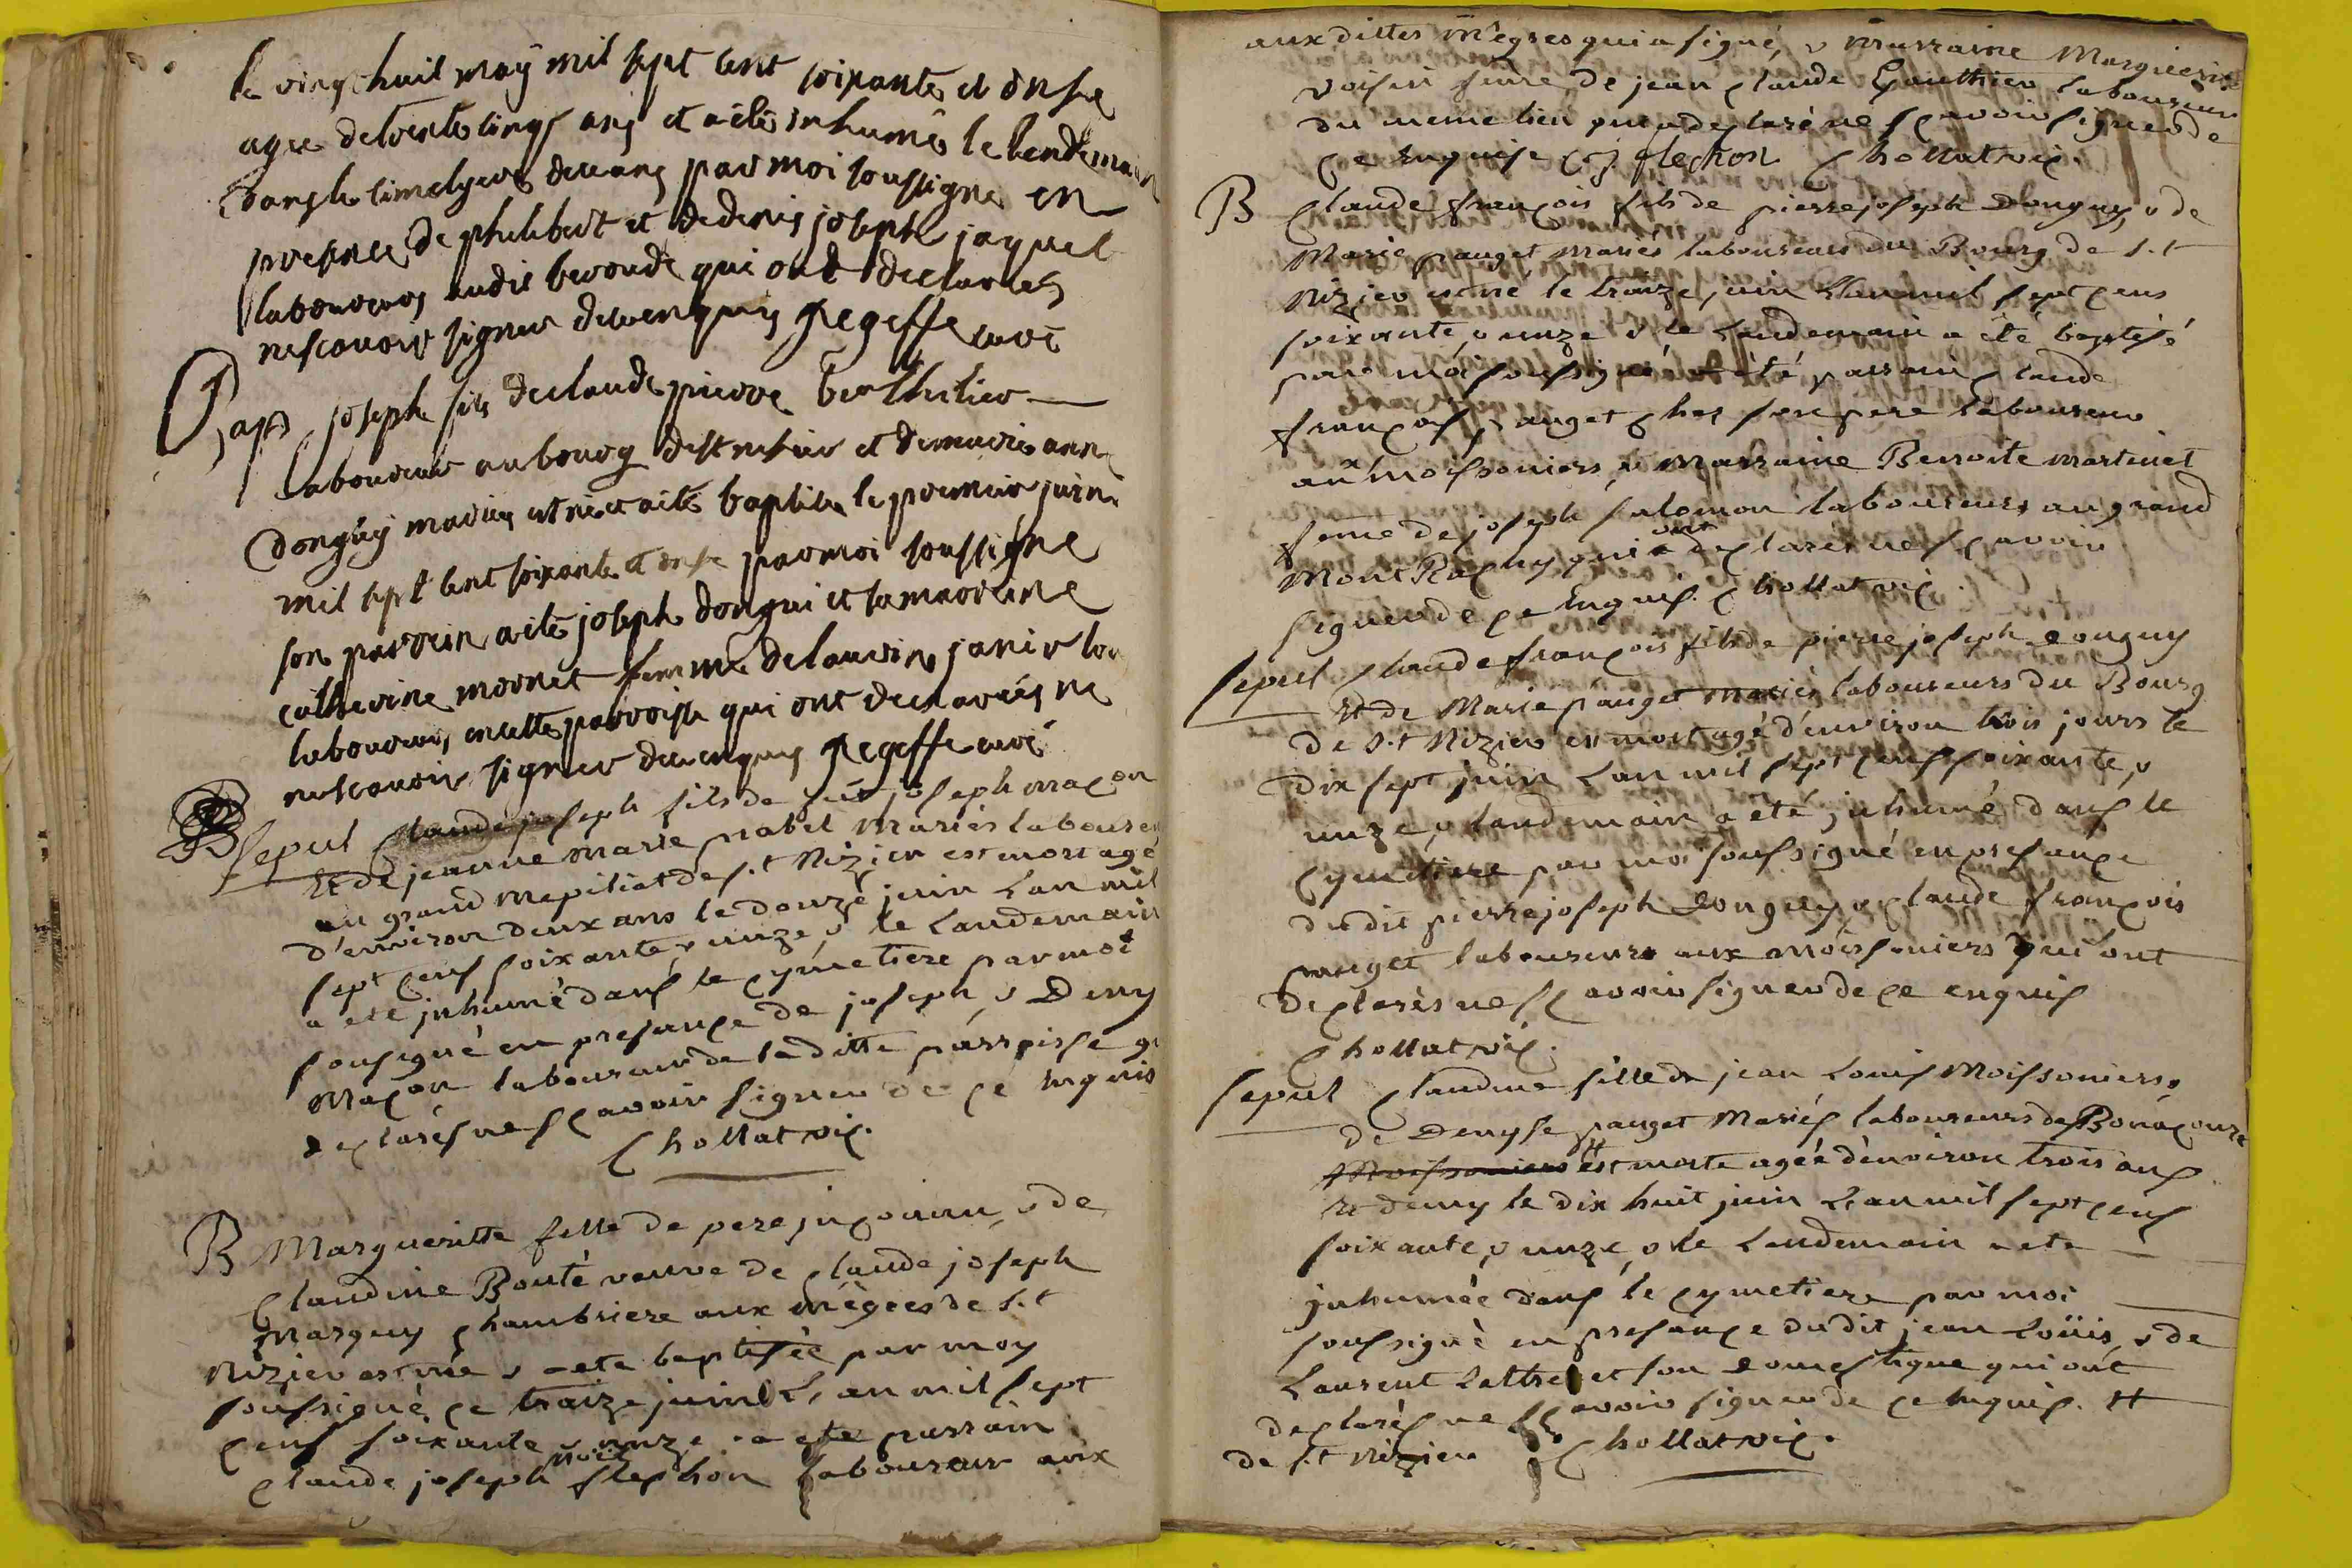 le vingt huit may mil sept cent soixante et onse
agee de trente cinqs ans et a été inhumé le lendemain
dans le cimetyere deceans par moi soussigné en
presence de philibert et de denis joseph jaquet
laboureurs audit bevoude qui ont declarés
ne scavoir signer de ce enquis Regeffe curé
Bapt joseph fils de claude pierre berthelier
laboureur au bourg de st nesier et de marie anne
donguy mariés est né et a ete baptisé le premier juin
mil sept cent soixante et onse par moi soussigné
son parrein a eté joseph dongui et sa marreine
catherine mornet femme de laurin janier
laboureurs en cette parroisse qui ont declarés ne
ne scavoir signer de ce enquis Regeffe curé
Sepul Claude joseph fils de joseph maçon
Et de jeanne marie pabel mariés laboureu
au grand mepiliat de s.t Nizier est mort agé
d'environ deux ans le douze juin L'an mil
sept cens soixante, & unze, & le Landemain
a eté jnhumé dans le cymetiere par moi
sousigné en presance de joseph, & Deny
Maçon laboureur de laditte parroisse q
declarés ne sçavoir signer de ce enquis
Chollat vic.
B Margueritte fille de pere jnconnu, & de
Claudine Bonté veuve de claude joseph
Marguy chambriere aux mègres de s.t
Nizier est née & a eté baptisée par moy
soussigné ce traize juin L'an mil sept
cens soixante & unze a eté parrain
claude joseph flechon laboureur aux
aux dittes mègres qui a signé, & marraine Marguerite
voisin feme de jean claude Gauthier laboureur
du meme lieu qui a declaré ne sçavoir signer de
ce enquise c j flechon Chollat vic.
B Claude françois fils de pierre joseph Donguy & de
Marie pauget mariés laboureurs du Bourg de s.t
Nizier est né le traize, juin L'an mil sept cens
soixante, & unze & le Landemain a été baptisé
par moi soussigné a été parrain claude
françois pauget chez son pere laboureur
aux moissoniers, & marraine Benoite martinet
feme de joseph salomon laboureurs au grand
Mont Rachy qui ont declarés ne sçavoir
signer de ce Enquis. Chollat vic.
Sepul Claude françois fils de pierre joseph donguy
Et de Marie pauget mariés laboureurs du Bourg
de s.t Nizier est mort agé d'environ trois jours le
dix sept juin L'an mil sept cens soixante, &
unze, & landemain a été jnhumé dans le
cymetiere par moi soussigné en presance
dudit pierre joseph donguy, & claude françois
pauget laboureurs aux moissoniers qui ont
declarés ne sçavoir signer de ce enquis
Chollat vic.
Sepul Claudine fille de jean Louis Moissoniers &
de Denyse pauget Mariés laboureurs
Moissoniers # est morte agée d'environ trois ans
Et demy le dix huit juin L'an mil sept cens
soixante, & unze, & le Landemain a eté
jnhumée dans le cymetiere par moi
soussigné en presance dudit jean Loüis, & de
Laurent et son domestique qui ont
declarés ne sçavoir signer de ce enquis. #
de s.t Nizier Chollat vic.